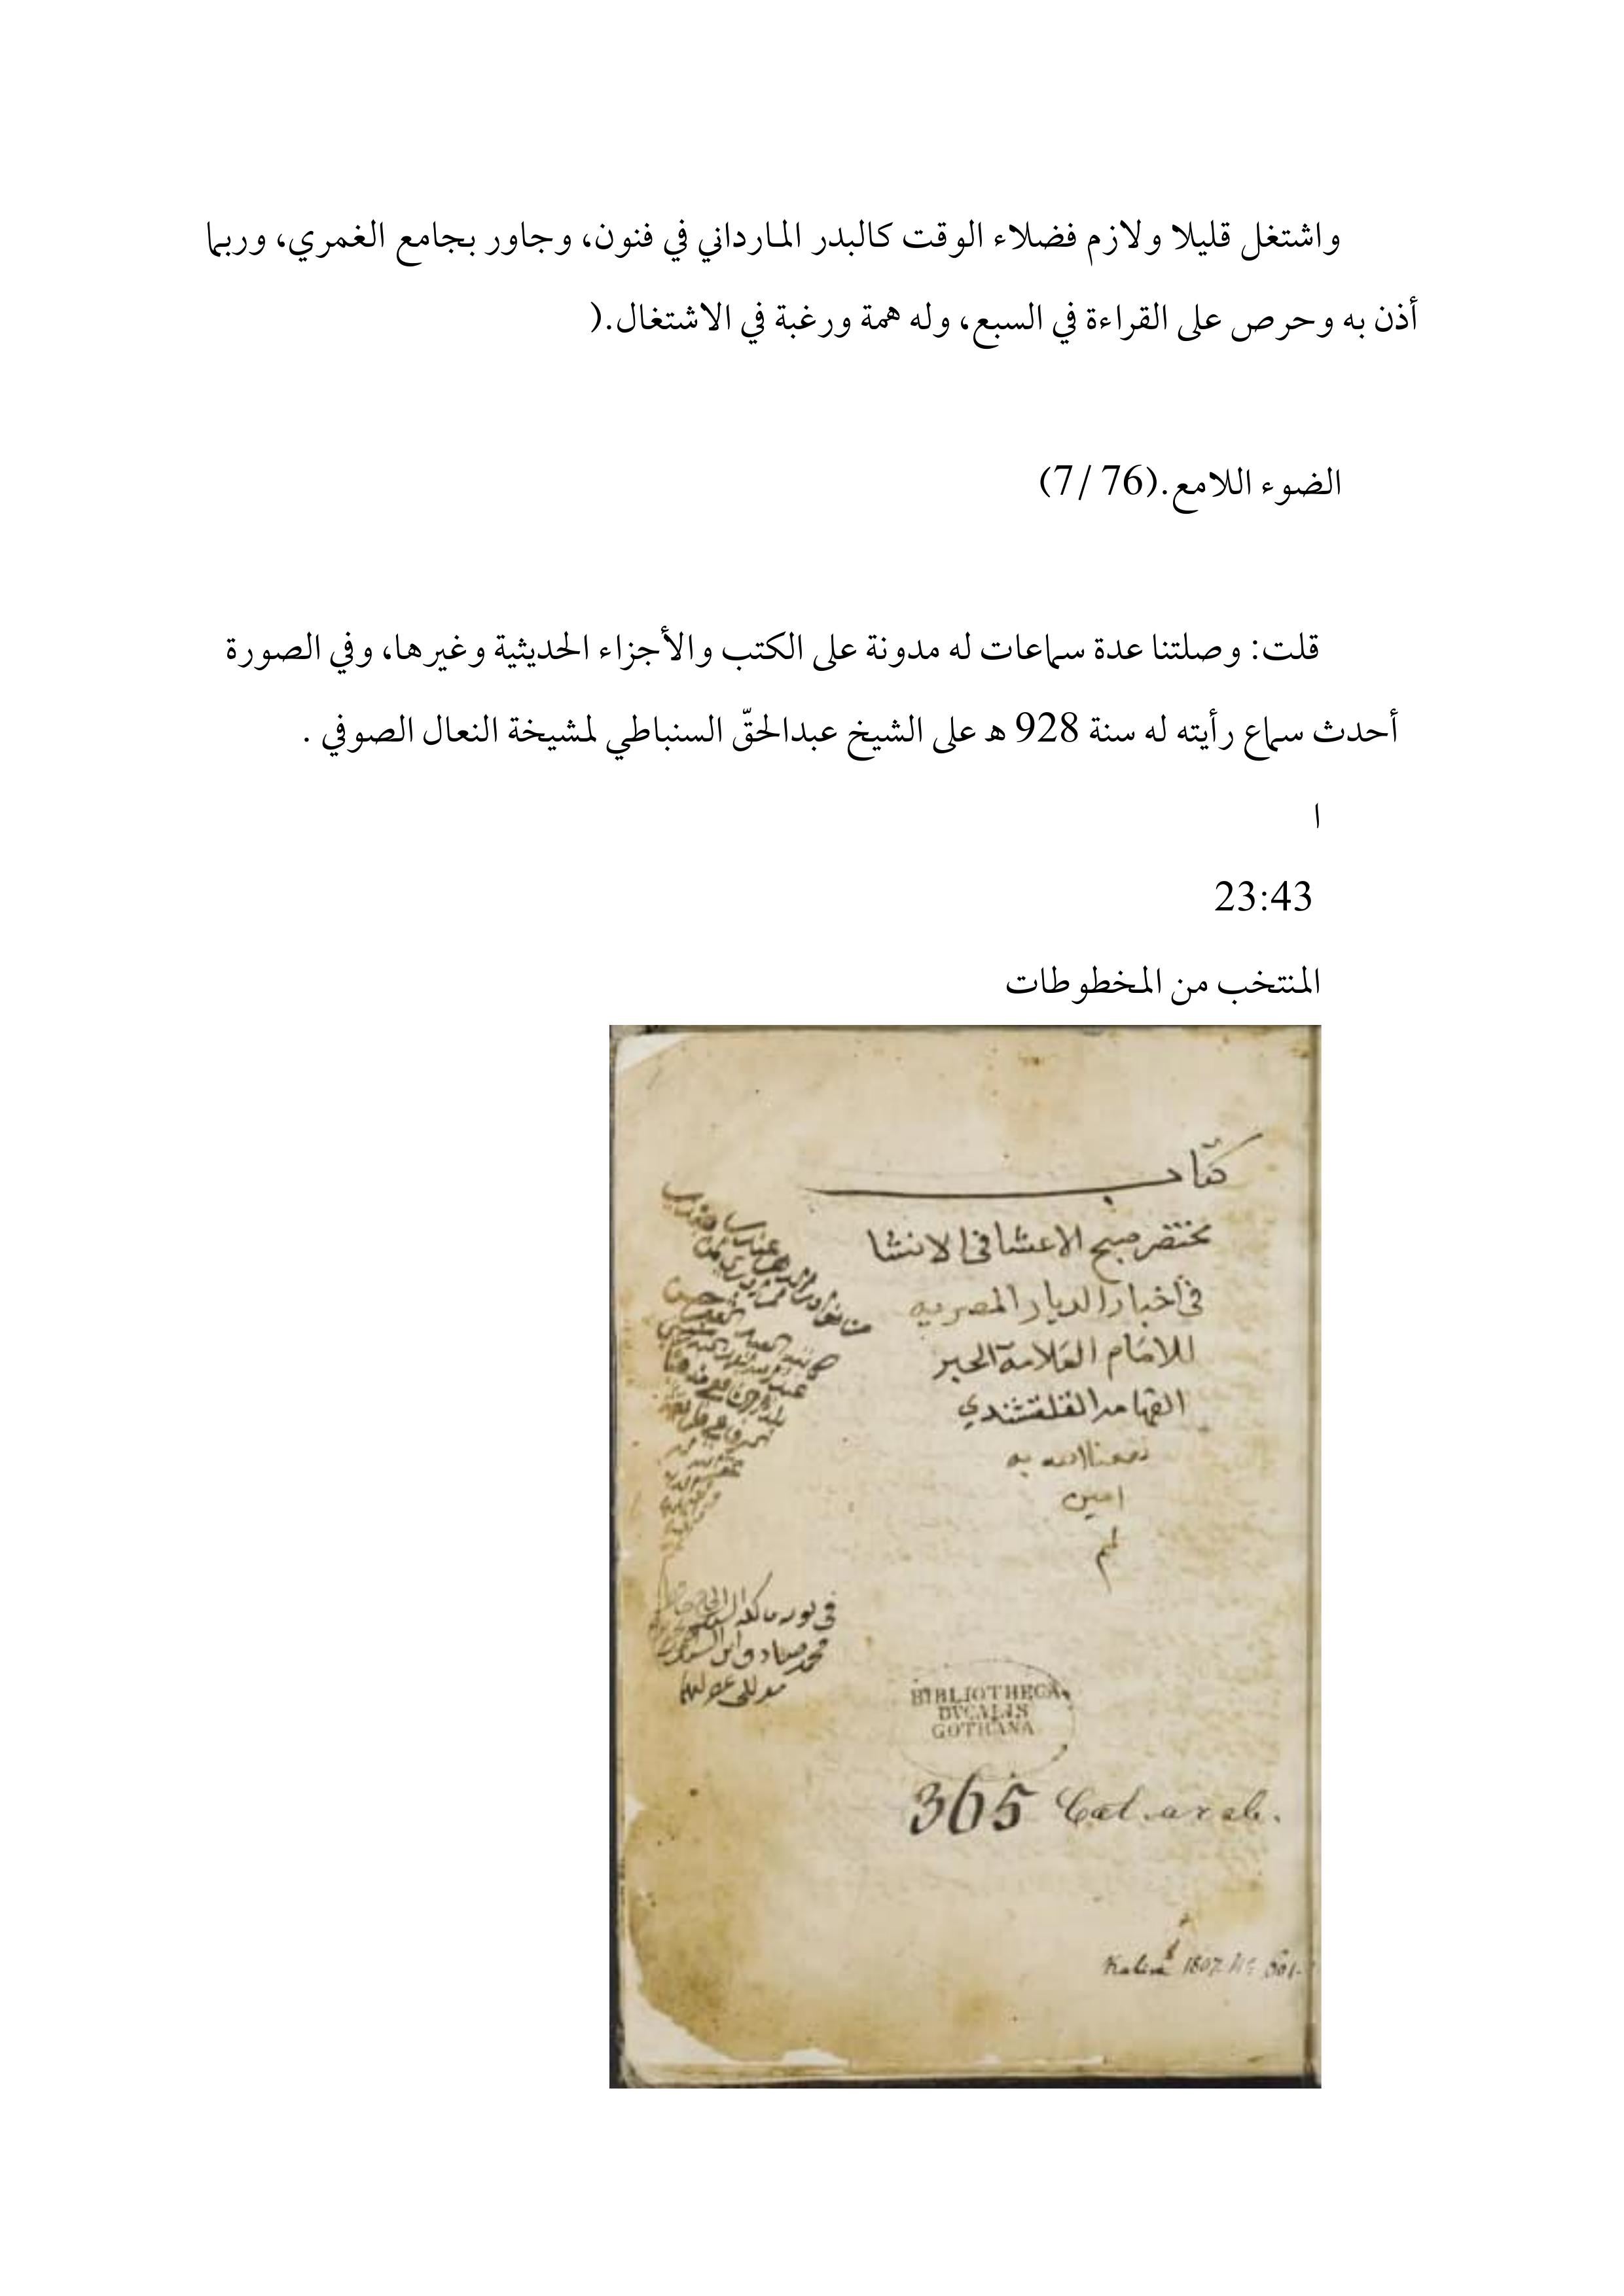 واشتغل قليلا ولازم فضلاء الوقت كالبدر المارداني في فنون، وجاور بجامع الغمري، وربما
أذن به وحرص على القراءة في السبع، وله همة ورغبة في الاشتغال.(
الضوء اللامع.(76 /7)
قلت: وصلتنا عدة سماعات له مدونة على الكتب والأجزاء الحديثية وغيرها، وفي الصورة
أحدث سماع رأيته له سنة 928 ه على الشيخ عبدالحقّ السنباطي لمشيخة النعال الصوفي .
ا
23:43
المنتخب من المخطوطات
كتاب
مختصر صبح الاعشا في الانشا
في أخبار الديار المصريه
للامام العلامة الحبر
الفهامه القلقشندي
نفعنا الله به
امين
محمد صادق ابن السيد
BIBLIOTHECA
DVCALIS
GOTHANA
365 Cat. arab.
1807